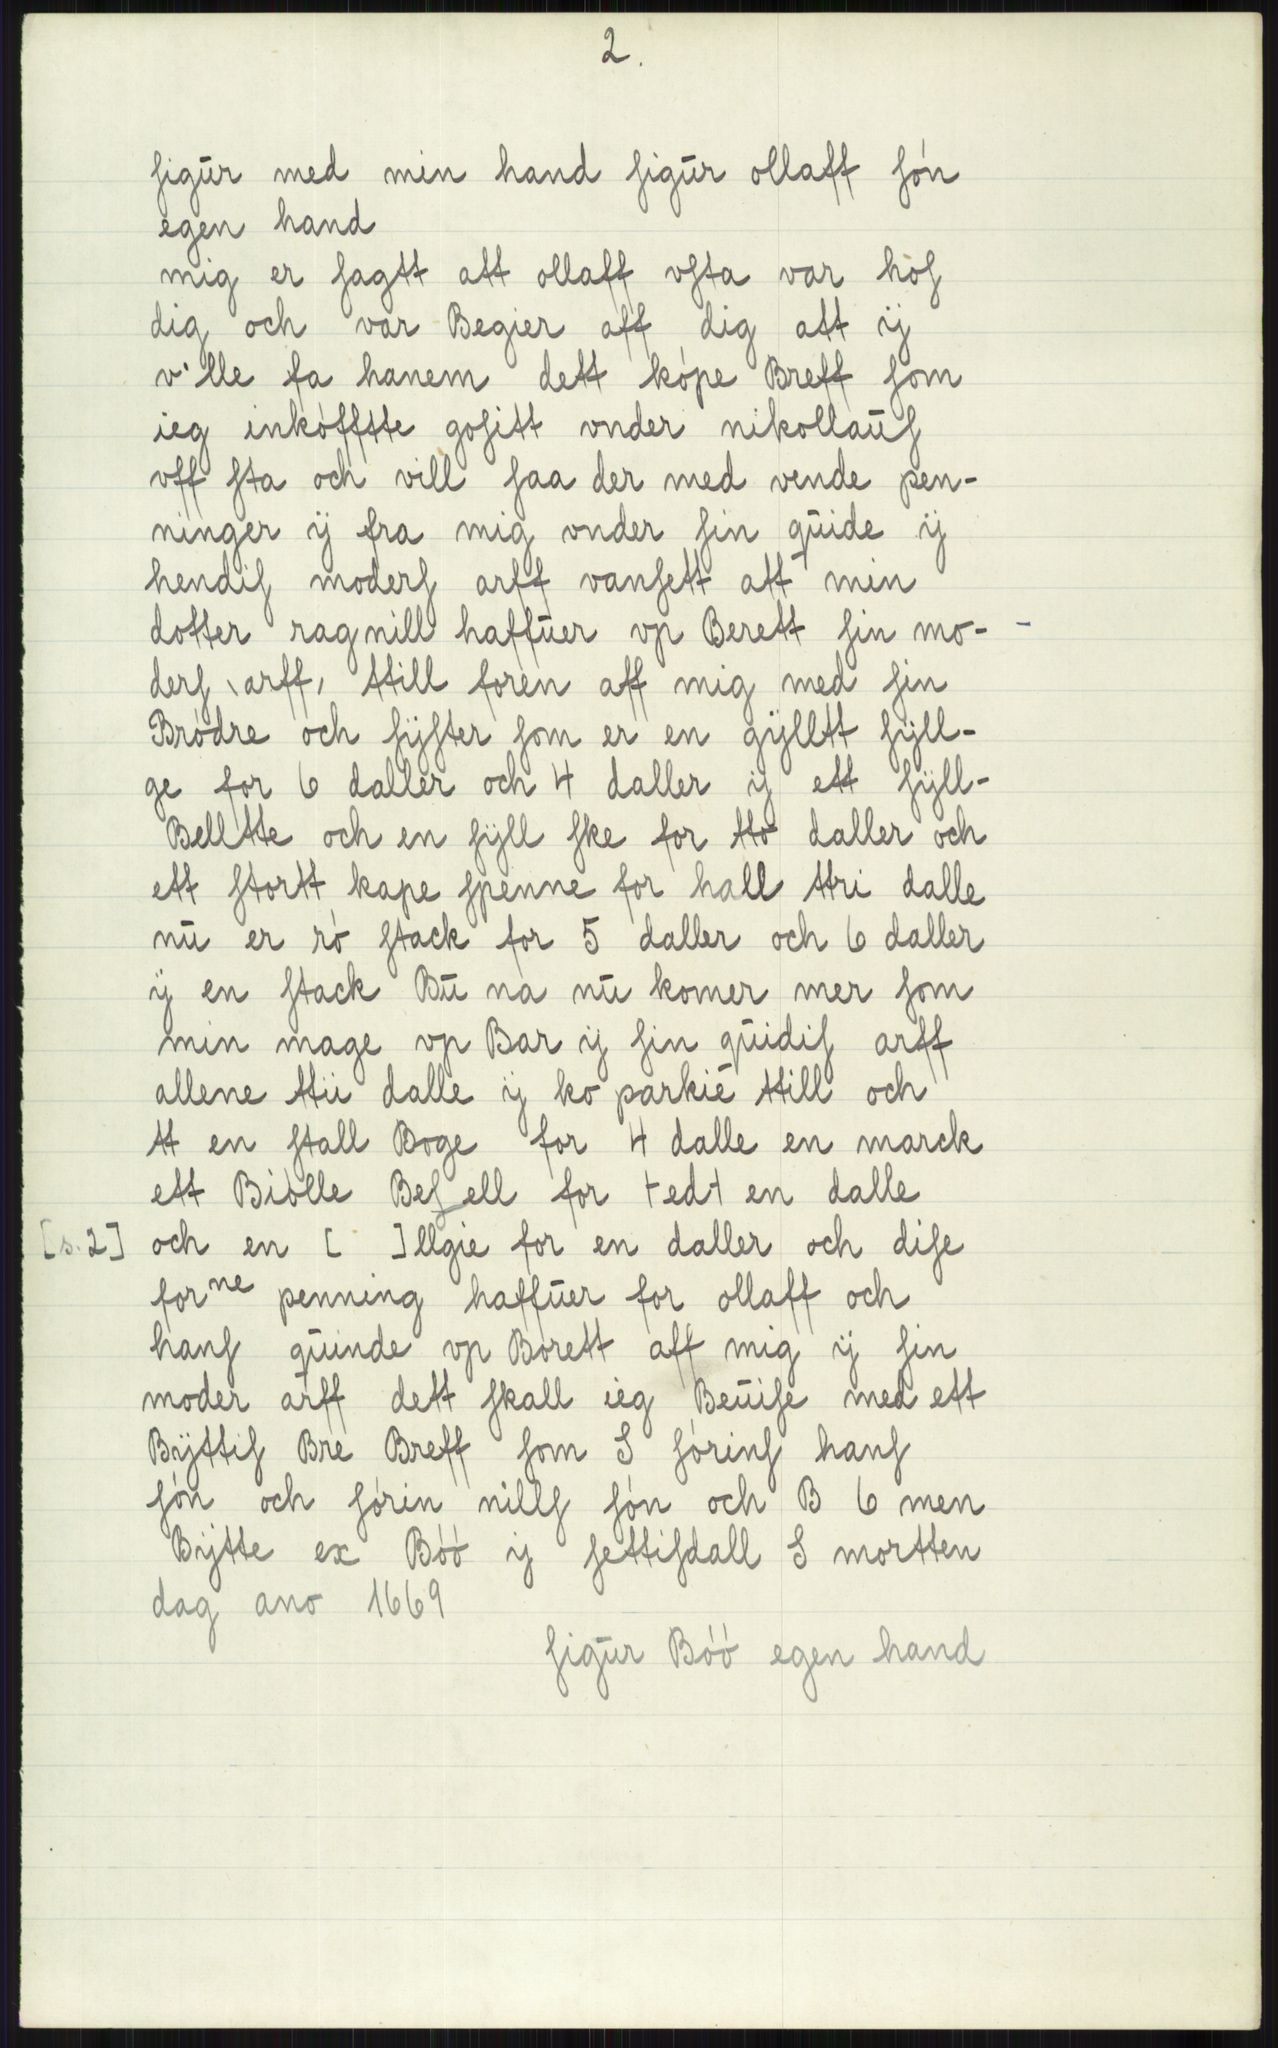 2.
ſigūr med min hand ſigūr ollaff ſón
egen hand
mig er ſagtt att ollaff vſta var hoſ
dig och var Begier aff dig att ij
v·lle fa hanem dett kópe Breff ſom
ieg inkóffſte goſitt vnder nikollaūſ
vff ſta och vill ſaa der med vende pen-
ninger ij fra mig vnder ſin qūide ij
hendiſ moderſ arff vanſett att min
dotter ragnill haffūer vp Berett ſin mo-
derſ \arff, ttill foren aff mig med ſin
Bródre och ſijſter ſom er en gijlltt ſijll-
ge for 6 daller och 4 daller ij ett ſijll-
Belltte och en ſijll ſke for tto daller och
ett ſtortt kape ſpenne for hall ttri dalle
nū er ró ſtack for 5 daller och 6 daller
ij en ſtack Bū na nū komer mer ſom
min mage vp Bar ij ſin qūidiſ arff
allene ttii dalle ij ko parkie ttill och
tt en ſtall Boge for 4 dalle en marck
ett Biólle Beſ ell for +ed+ en dalle
[s. 2] och en [ ]llgie for en daller och diſe
forne penning haffūer for ollaff och
hanſ qūinde vp Borett aff mig ij ſin
moder arff dett ſkall ieg Beūiſe med ett
Bijttiſ Bre Breff ſom S ſórinſ hanſ
ſón och ſórin nillſ ſón och B 6 men
Bijtte ex Bóó ij ſettiſdall S mortten
dag ano 1669
ſigūr Bóó egen hand